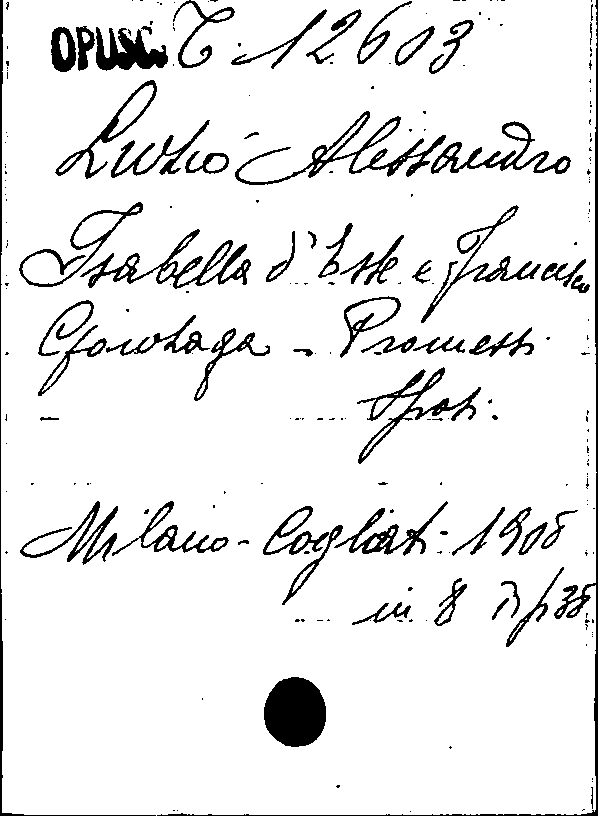 OPUSC. C. 12603
Luzio Alessandro
Isabella d'Este e Francesco
Gonzaga - Promessi
Sposi.
Milano - Cogliati - 1908
in 8 p 38